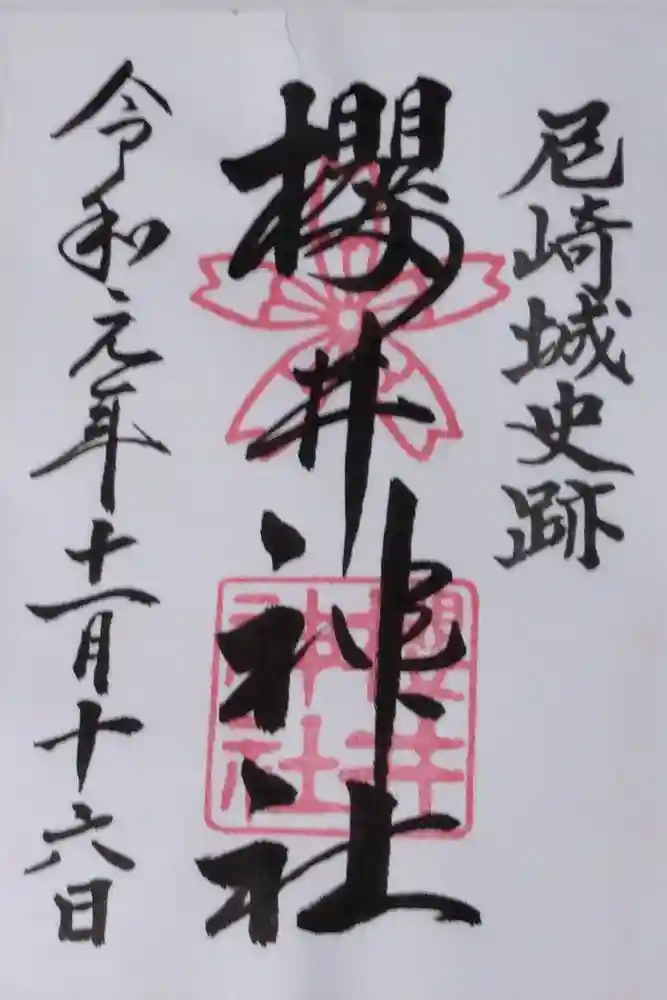 尼崎城史跡
櫻井神社
櫻井
神社
令和元年十一月十六日